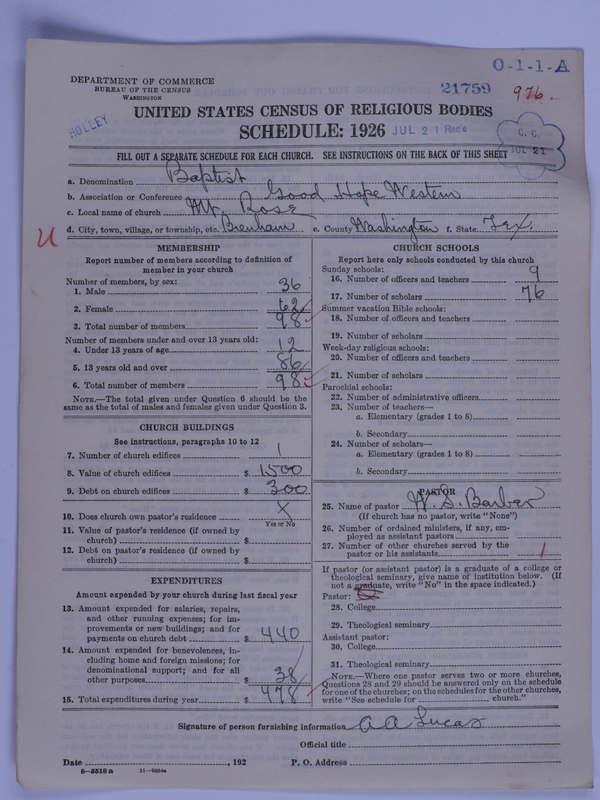 O-1-1-A
DEPARTMENT OF COMMERCE
BUREAU OF THE CENSUS
WASHINGTON
21759
976.
HOLLEY
UNITED STATES CENSUS OF RELIGIOUS BODIES
SCHEDULE: 1926
JUL 21 Rec'd
C. C.
JUL 21
FILL OUT A SEPARATE SCHEDULE FOR EACH CHURCH. SEE INSTRUCTIONS ON THE BACK OF THIS SHEET
a. Denomination Baptist
b. Association or Conference Good Hope Western
c. Local name of church Mt. Rose
d. City, town, village, or township, etc. Brenham e. County Washington f. State Tex.
U
MEMBERSHIP
Report number of members according to definition of
member in your church
Number of members, by sex:
1. Male 36
2. Female 62
3. Total number of members 98
Number of members under and over 13 years old:
4. Under 13 years of age 12
5. 13 years old and over 86
6. Total number of members 98
NOTE.—The total given under Question 6 should be the
same as the total of males and females given under Question 3.
CHURCH BUILDINGS
See instructions, paragraphs 10 to 12
7. Number of church edifices 1
8. Value of church edifices $ 1500
9. Debt on church edifices $ 300
10. Does church own pastor's residence X
Yes or No
11. Value of pastor's residence (if owned by
church) $
12. Debt on pastor's residence (if owned by
church) $
EXPENDITURES
Amount expended by your church during last fiscal year
13. Amount expended for salaries, repairs,
and other running expenses; for im-
provements or new buildings; and for
payments on church debt $ 440
14. Amount expended for benevolences, in-
cluding home and foreign missions; for
denominational support; and for all
other purposes $ 38
15. Total expenditures during year $ 478
CHURCH SCHOOLS
Report here only schools conducted by this church
Sunday schools:
16. Number of officers and teachers 9
17. Number of scholars 76
Summer vacation Bible schools:
18. Number of officers and teachers
19. Number of scholars
Week-day religious schools:
20. Number of officers and teachers
21. Number of scholars
Parochial schools:
22. Number of administrative officers
23. Number of teachers—
a. Elementary (grades 1 to 8)
b. Secondary
24. Number of scholars—
a. Elementary (grades 1 to 8)
b. Secondary
PASTOR
25. Name of pastor W. S. Barber
(If church has no pastor, write "None")
26. Number of ordained ministers, if any, em-
ployed as assistant pastors
27. Number of other churches served by the
pastor or his assistants 1
If pastor (or assistant pastor) is a graduate of a college or
theological seminary, give name of institution below. (If
not a graduate, write "No" in the space indicated.)
Pastor:
28. College
29. Theological seminary
Assistant pastor:
30. College
31. Theological seminary
NOTE.—Where one pastor serves two or more churches,
Questions 28 and 29 should be answered only on the schedule
for one of the churches; on the schedules for the other churches,
write "See schedule for church."
Signature of person furnishing information A A Lucas
Official title
Date , 192 P. O. Address
8—5518 a 11—9954a